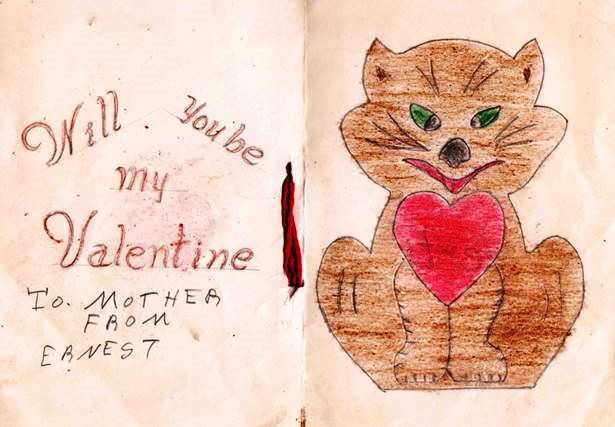 Will you be
my
Valentine
To. MOTHER
FROM
ERNEST